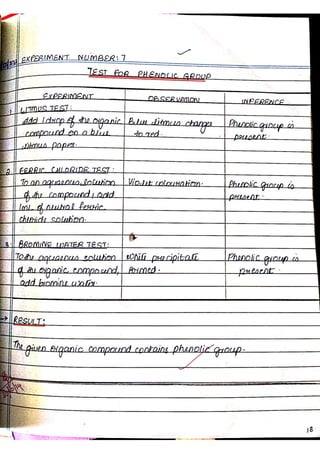 EXPERIMENT NUMBER: 7
TEST FOR PHENOLIC GROUP
EXPERIMENT OBSERVATION INFERENCE
1. LITMUS TEST:
Add 1 drop of the organic Blue litmus change Phenolic group is
compound on a blue to red. present.
litmus paper.
2. FERRIC CHLORIDE TEST:
To an aqueous solution Violet colouration. Phenolic group is
of the compound, add present.
1mL of neutral ferric
chloride solution.
3. BROMINE WATER TEST:
To the aqueous solution White precipitate Phenolic group is
of the organic compound, formed. present.
add bromine water
→ RESULT:
The given organic compound contains phenolic group.
18